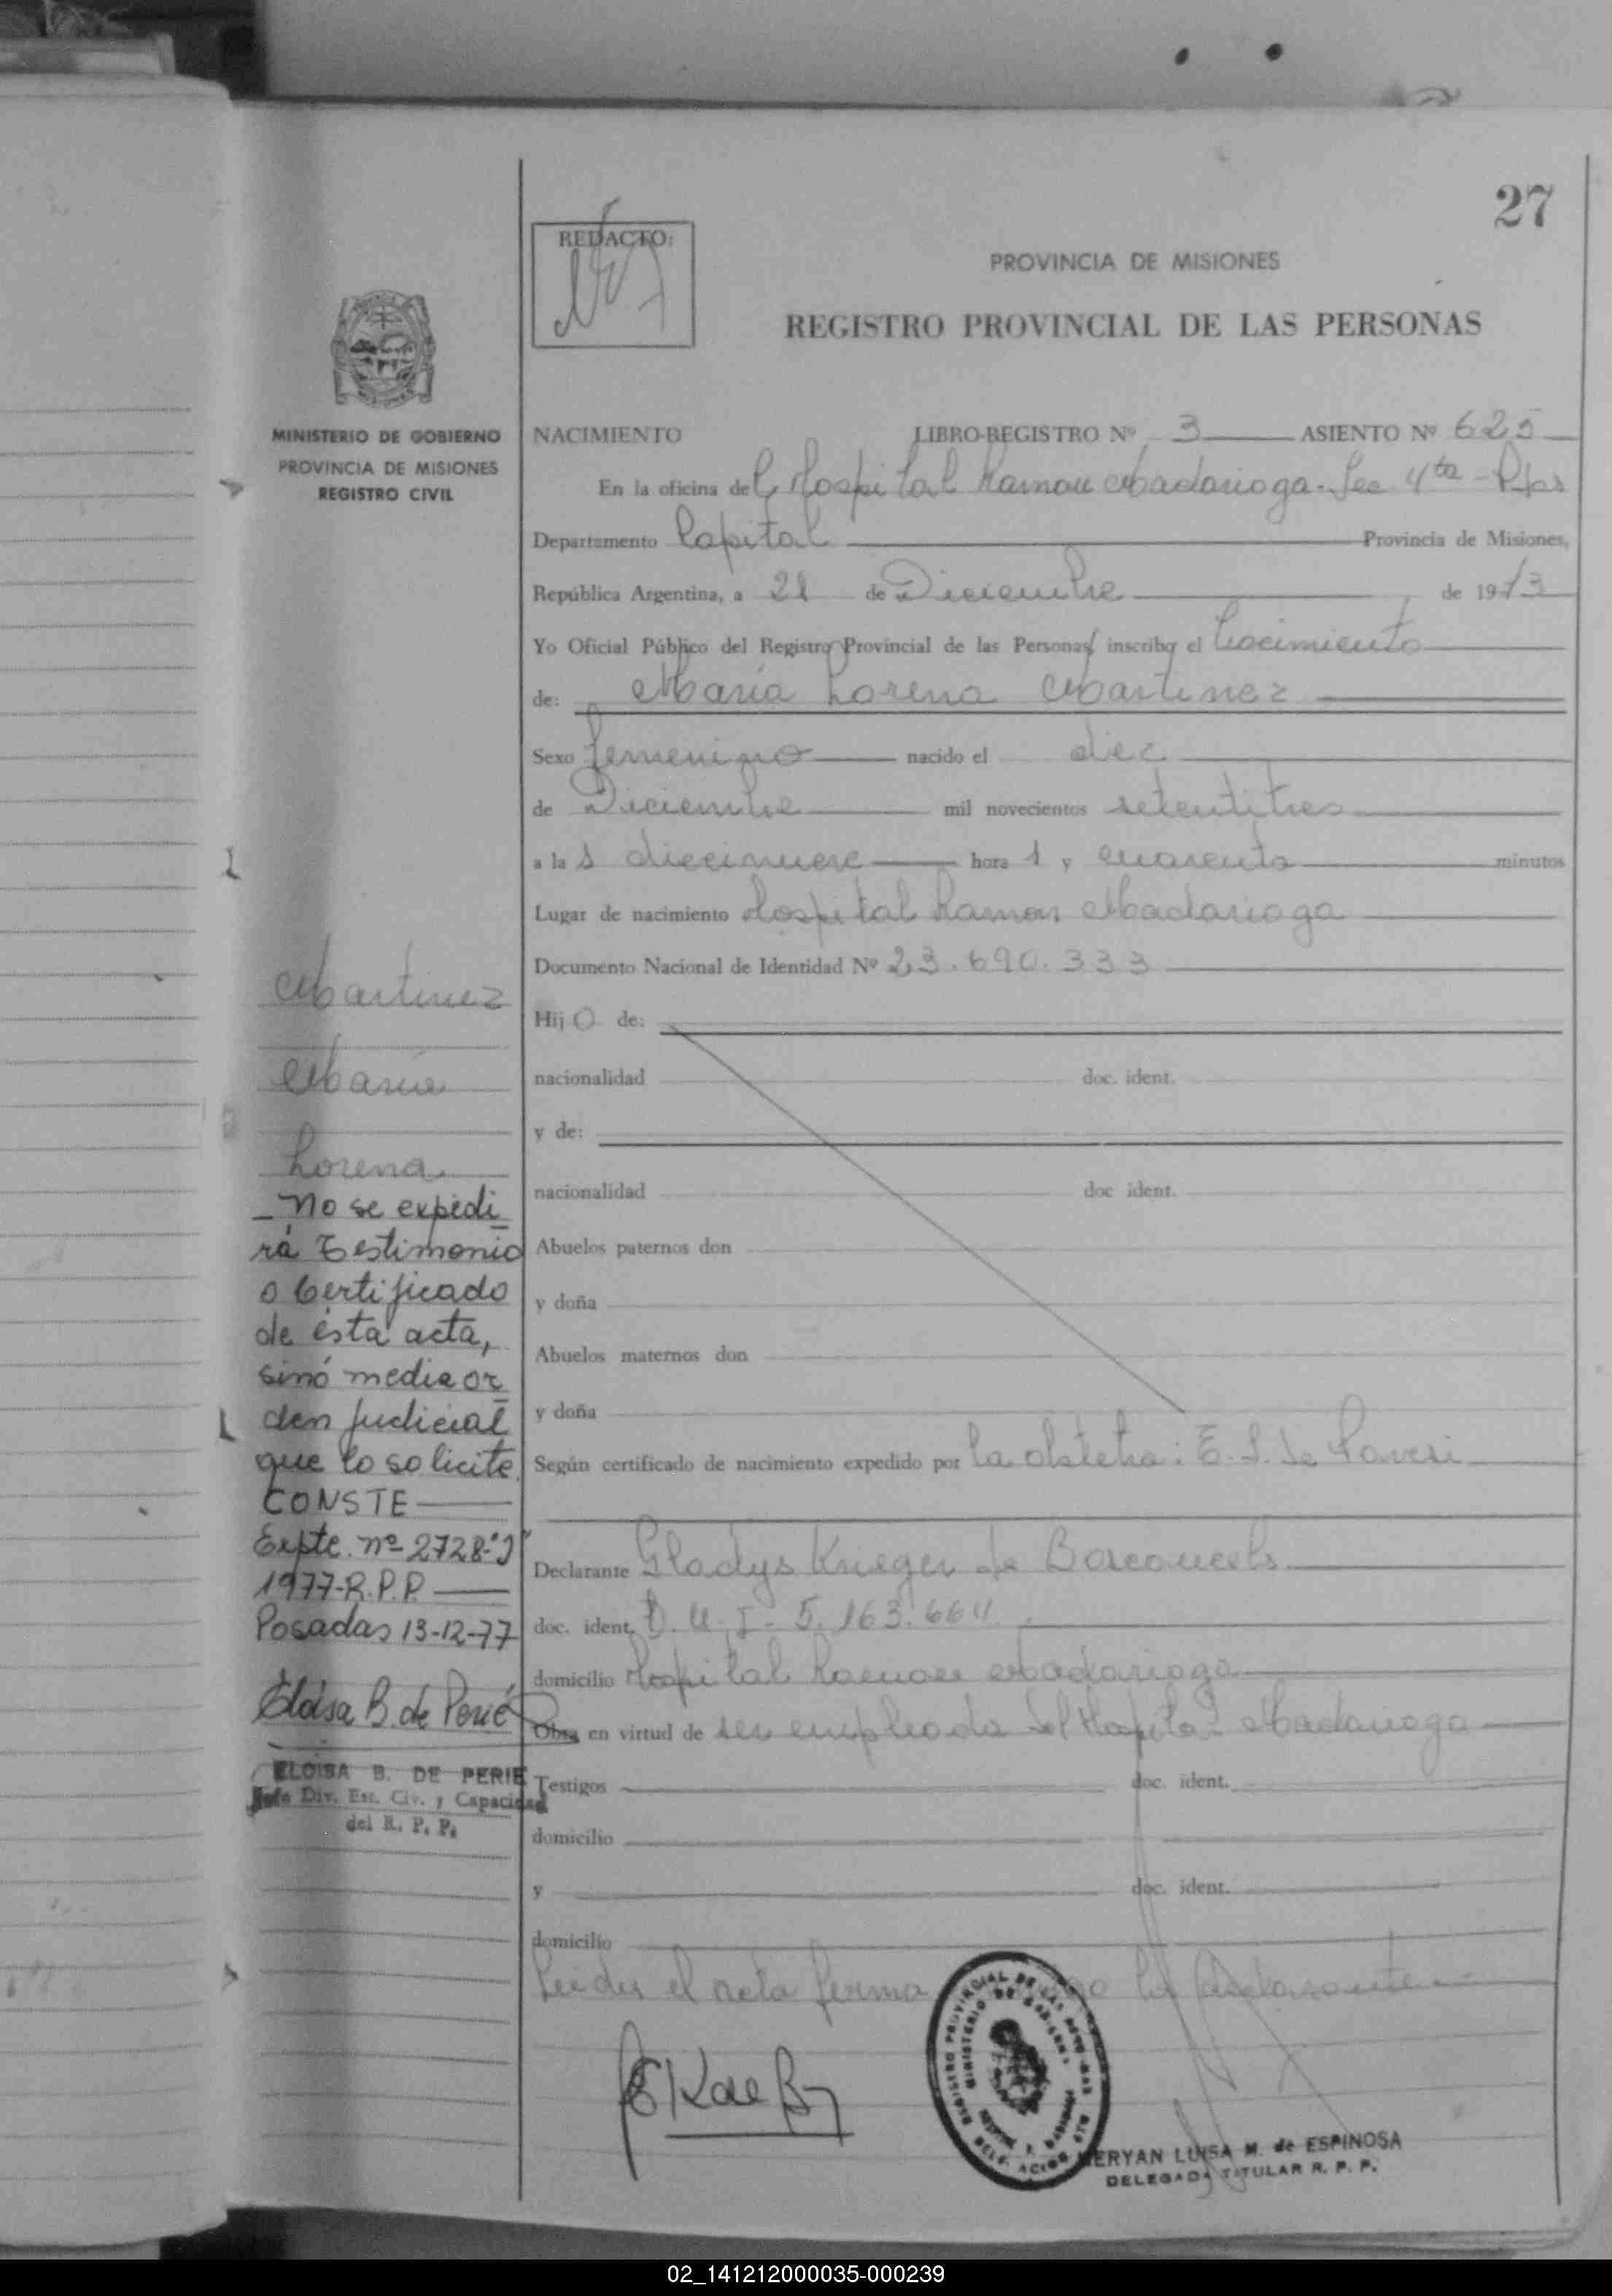 27
REDACTO:
PROVINCIA DE MISIONES
REGISTRO PROVINCIAL DE LAS PERSONAS
MINISTERIO DE GOBIERNO
PROVINCIA DE MISIONES
REGISTRO CIVIL
NACIMIENTO LIBRO-REGISTRO Nº 3 ASIENTO Nº 625
En la oficina del Hospital Ramon Madariaga - Sec 4ta - Pdas
Departamento Capital Provincia de Misiones,
República Argentina, a 21 de Diciembre de 1973
Yo Oficial Público del Registro Provincial de las Personas, inscribo el nacimiento
de: María Lorena Martinez
Sexo femenino nacido el diez
de Diciembre mil novecientos setentitres
a la s diecinueve hora s y cuarenta minutos
Lugar de nacimiento Hospital Ramon Madariaga
Documento Nacional de Identidad Nº 23.690.333
Hij o de:
nacionalidad doc. ident.
y de:
nacionalidad doc ident.
Abuelos paternos don
y doña
Abuelos maternos don
y doña
Según certificado de nacimiento expedido por la obstetra: E. S. de Pavesi
Declarante Gladys Krieger de
doc. ident. D.U.I - 5.163.664
domicilio Hospital Ramon Madariaga
Obra en virtud de ser empleada del Hospital Madariaga
Testigos doc. ident.
domicilio
y doc. ident.
domicilio
Leida el acta firma la declarante
Martinez
María
Lorena
_No se expedi_
rá Testimonio
o Certificado
de ésta acta,
sinó media or_
den judicial
que lo solicite.
CONSTE
Expte. nº 2728-"J"
1977-R.P.P.
Posadas 13-12-77
Eloisa B. de Perié
ELOISA B. DE PERIE
Jefe Div. Est. Civ. y Capacidad
del R. P. P.
REGISTRO PROVINCIAL DE LAS PERSONAS
MINISTERIO DE GOBIERNO
MERYAN LUISA M. de ESPINOSA
DELEGADA TITULAR R. P. P.
02_141212000035-000239